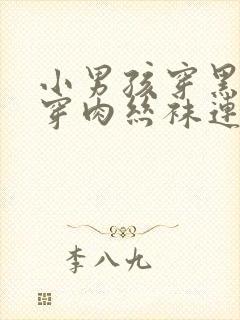 小男孩穿黑
穿肉丝袜连
李八九